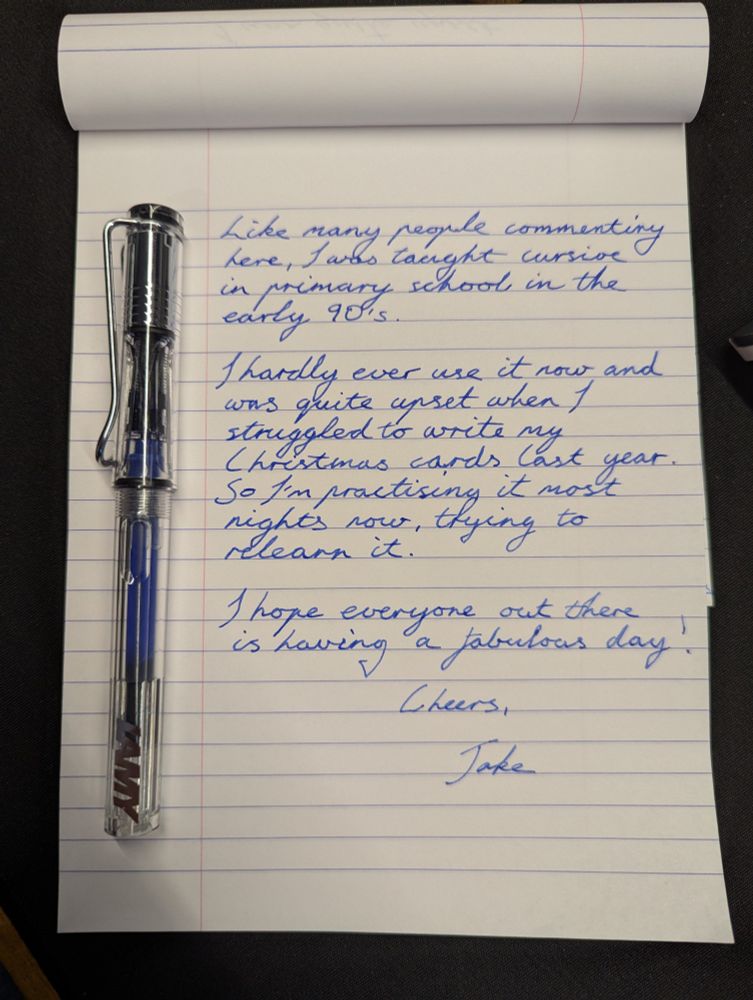 Like many people commenting
here, I was taught cursive
in primary school, in the
early 90's.
I hardly ever use it now and
was quite upset when I
struggled to write my
Christmas cards last year.
So I'm practising it most
nights now, trying to
relearn it.
I hope everyone out there
is having a fabulous day!
Cheers,
Jake
LAMY